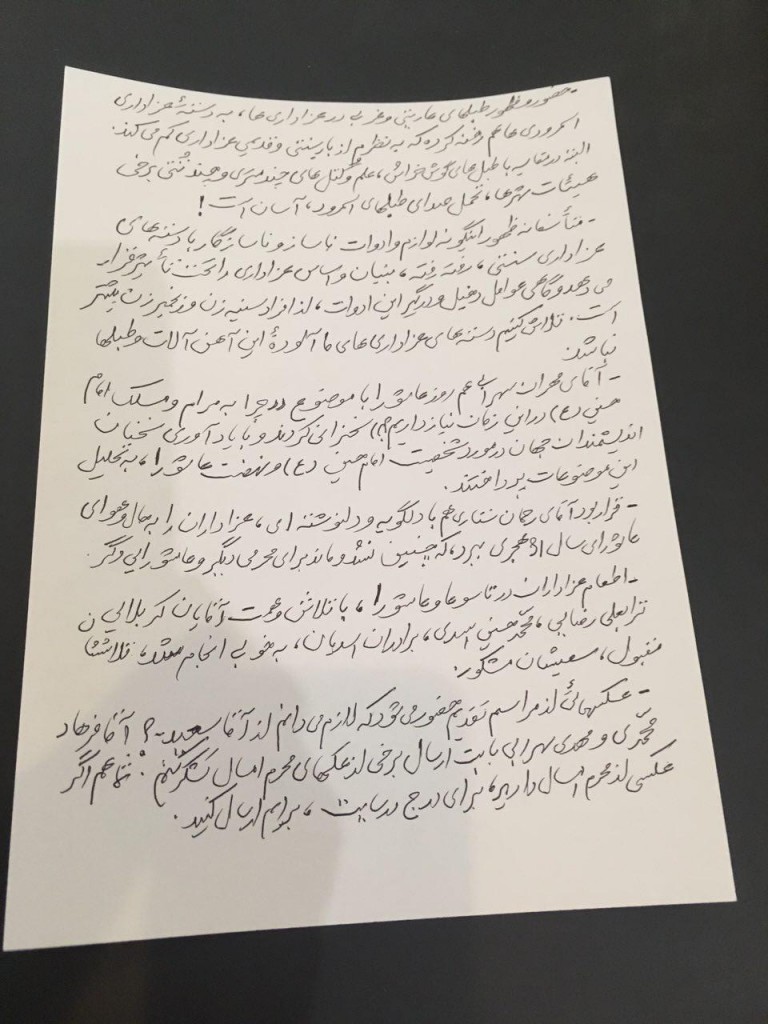 -حضور و ظهور طبلهای عاریتی و غربی در عزاداری ها، به دستهٔ عزاداری
امرودی ها هم رخنه کرده که به نظرم از بار سنتی و قدیمی عزاداری کم می کند.
البته در مقایسه با طبل های گوش خراش، علم و کُتل های چند متری و چند تُنی برخی
هیئات شهرها، تحمل صدای طبلهای امرود، آسان است!
-متأسفانه ظهور اینگونه لوازم و ادوات ناساز و ناسازگار با دسته های
عزاداری سنتی، رفته رفته، بنیان و اساس عزاداری را تحت تأثیر قرار
می دهد و گاهی عوامل دخیل و درگیر این ادوات، از افراد سینه زن و زنجیر زن بیشتر
است. تلاش کنیم دسته های عزاداری های ما آلودهٔ این آهن آلات و طبلها
نباشد.
-آقای مهران سهرابی هم روز عاشورا با موضوع ((چرا به مرام و مسلک امام
حسین (ع) در این زمان نیاز داریم؟)) سخنرانی کردند و با یادآوری سخنان
اندیشمندان جهان در مورد شخصیت امام حسین (ع) و نهضت عاشورا، به تحلیل
این موضوعات پرداختند.
-قرار بود آقای رحمان ستاری هم با دلگویه و دلنوشته ای، عزاداران را به حال و هوای
عاشورای سال 61 هجری ببرد، که چنین نشد و ماند برای محرمی دیگر و عاشورایی دگر.
-اطعام عزاداران در تاسوعا و عاشورا، با تلاش و همت آقایان کربلایی
ترابعلی رضایی، محمّدحسین اسدی، برادران اسدیان، به خوبی انجام شد، تلاششان
مقبول، سعیشان مشکور.
-عکسهائی از مراسم تقدیم حضور می شود که لازم می دانم از آقا سعید ؟ آقا فرهاد
محمّدی و مهدی سهرابی بابت ارسال برخی از عکسهای محرم امسال تشکر کنم. شما هم اگر
عکسی از محرم امسال دارید، برای درج در سایت، برایم ارسال کنید.